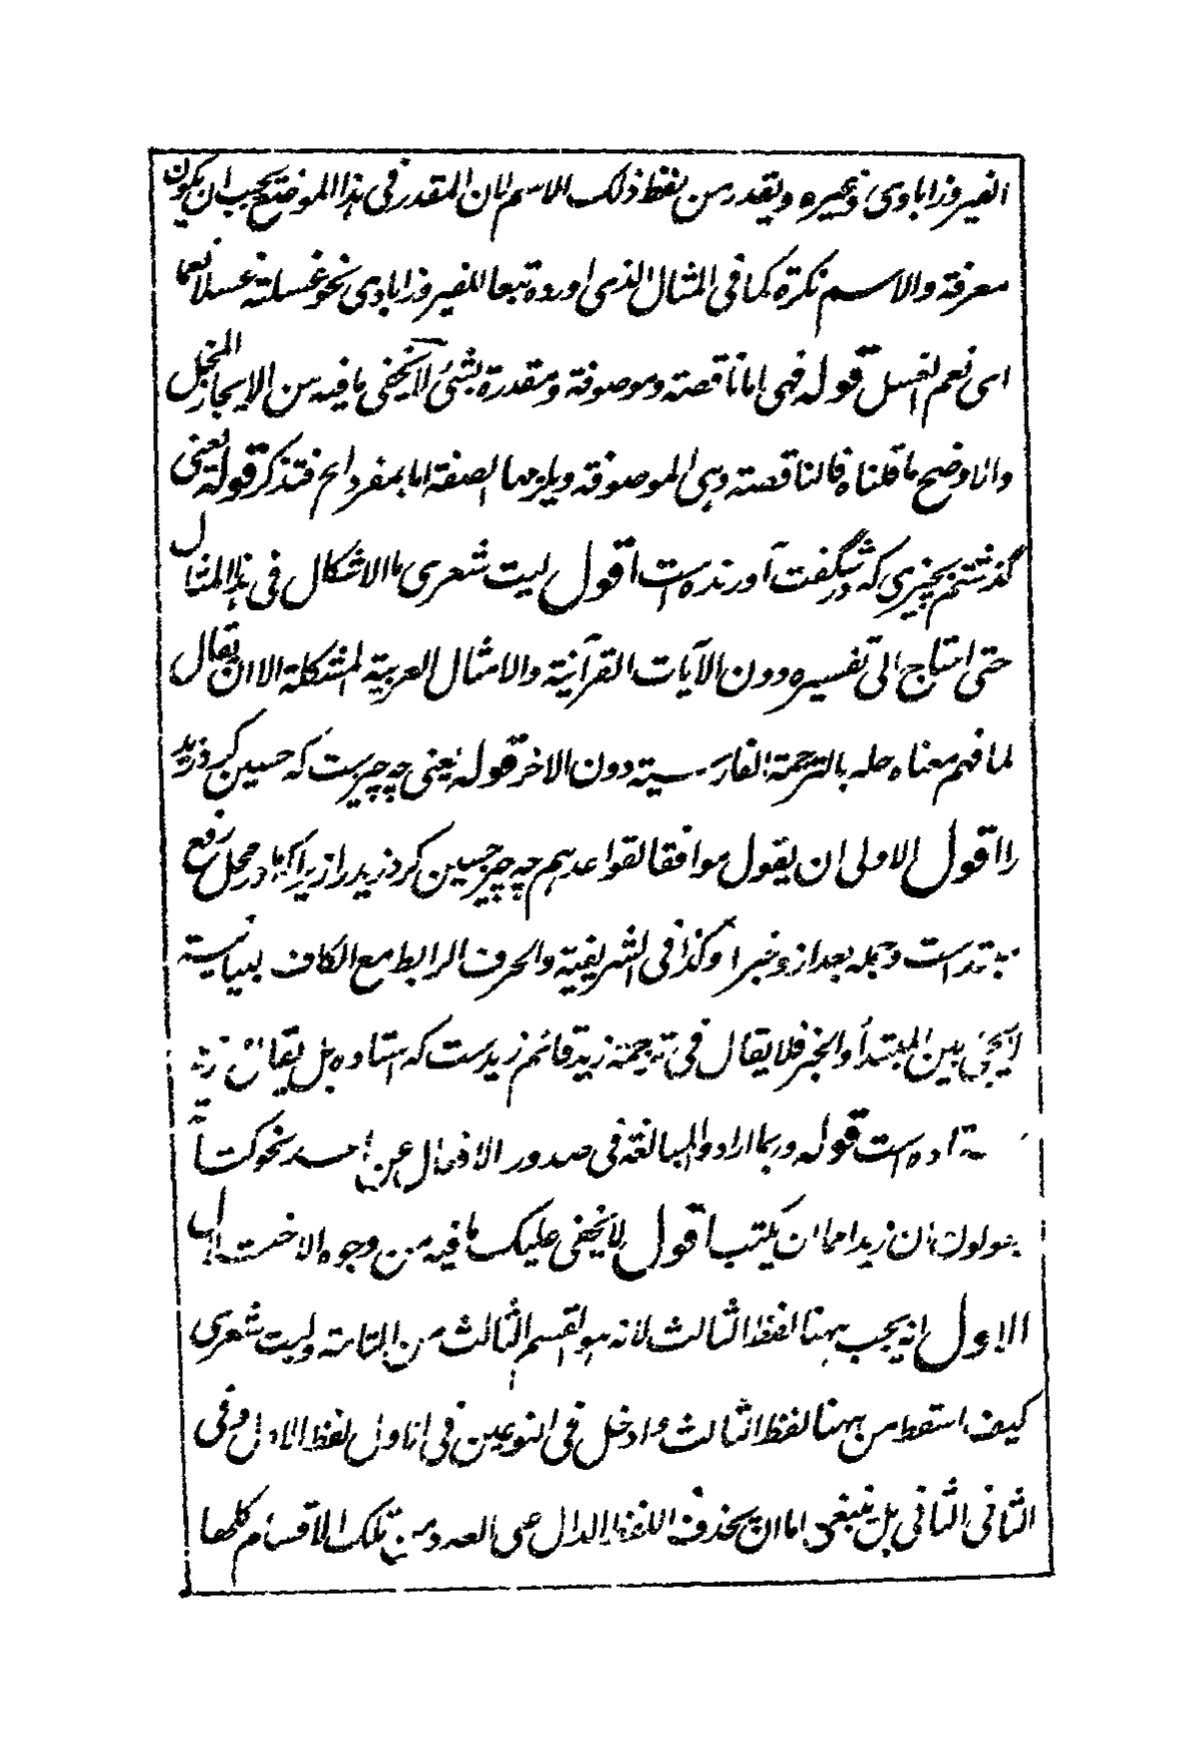 الفیروزابادی وغیره ویقدر من لفظ ذلک الاسم لان المقدر فی هذا الموضع یجب ان یکون
معرفة والاسم نکرة کما فی المثال الذی اورده تبعا للفیروزابادی نحو غسلته غسلا نعما
ای نعم الغسل قوله فهی اما ناقصة وموصوفة ومقدرة بشیٔ لا یخفی ما فیه من الایجاز المخل
وانا وضح ما قلناه فالناقصة وهی الموصوفة ویلزمها الصفة اما بمفرد الخ فتذکر قوله یعنی
گذشتم بچیزی که در شگفت آورنده است اقول لیت شعری ما الاشکال فی هذا المثال
حتی احتاج الی تفسیره دون الآیات القرآنیة والامثال العربیة المشکلة الا ان یقال
لما فهم معناه حله بالترجمة الفارسیة دون الاخر قوله یعنی چه چیزست که حسین کرد زید
را اقول الاولی ان یقول موافقا لقواعدهم چه چیز حسین کرد زید را زیراکه ما در محل رفع
مبتداست وجمله بعد ازو خبر او کذا فی الشریفیة والحرف الرابط مع الکاف بیانیة
لایجیٔ بین المبتدأ والخبر فلا یقال فی ترجمة زید قائم زیدست که استاده بل یقال زید
ستاده است قوله وربما ارادوا المبالغة فی صدور الافعال عن احد نحو کتابة
یقولون ان زیدا مما ان یکتب اقول لا یخفی علیک ما فیه من وجوه الاختلال
الاول انه یجب ههنا لفظ الثالث لانه هو القسم الثالث من التامة ولیت شعری
کیف اسقط من ههنا لفظ الثالث وادخل فی النوعین فی الاول لفظ الاول وفی
الثانی الثانی بل ینبغی اما ان یحذف اللفظ الدال علی العدد من تلک الاقسام کلها